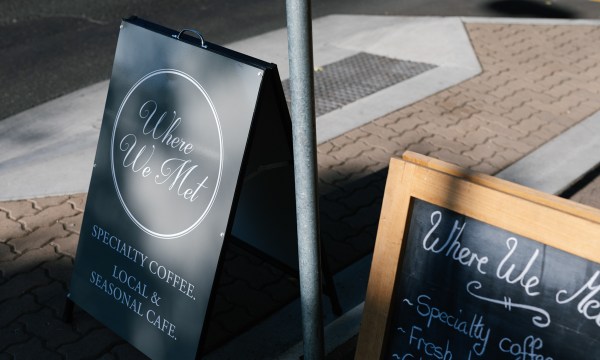 Where
We Met
SPECIALTY COFFEE.
LOCAL &
SEASONAL CAFE.
Where We Me
~Specialty coff
~Fresh